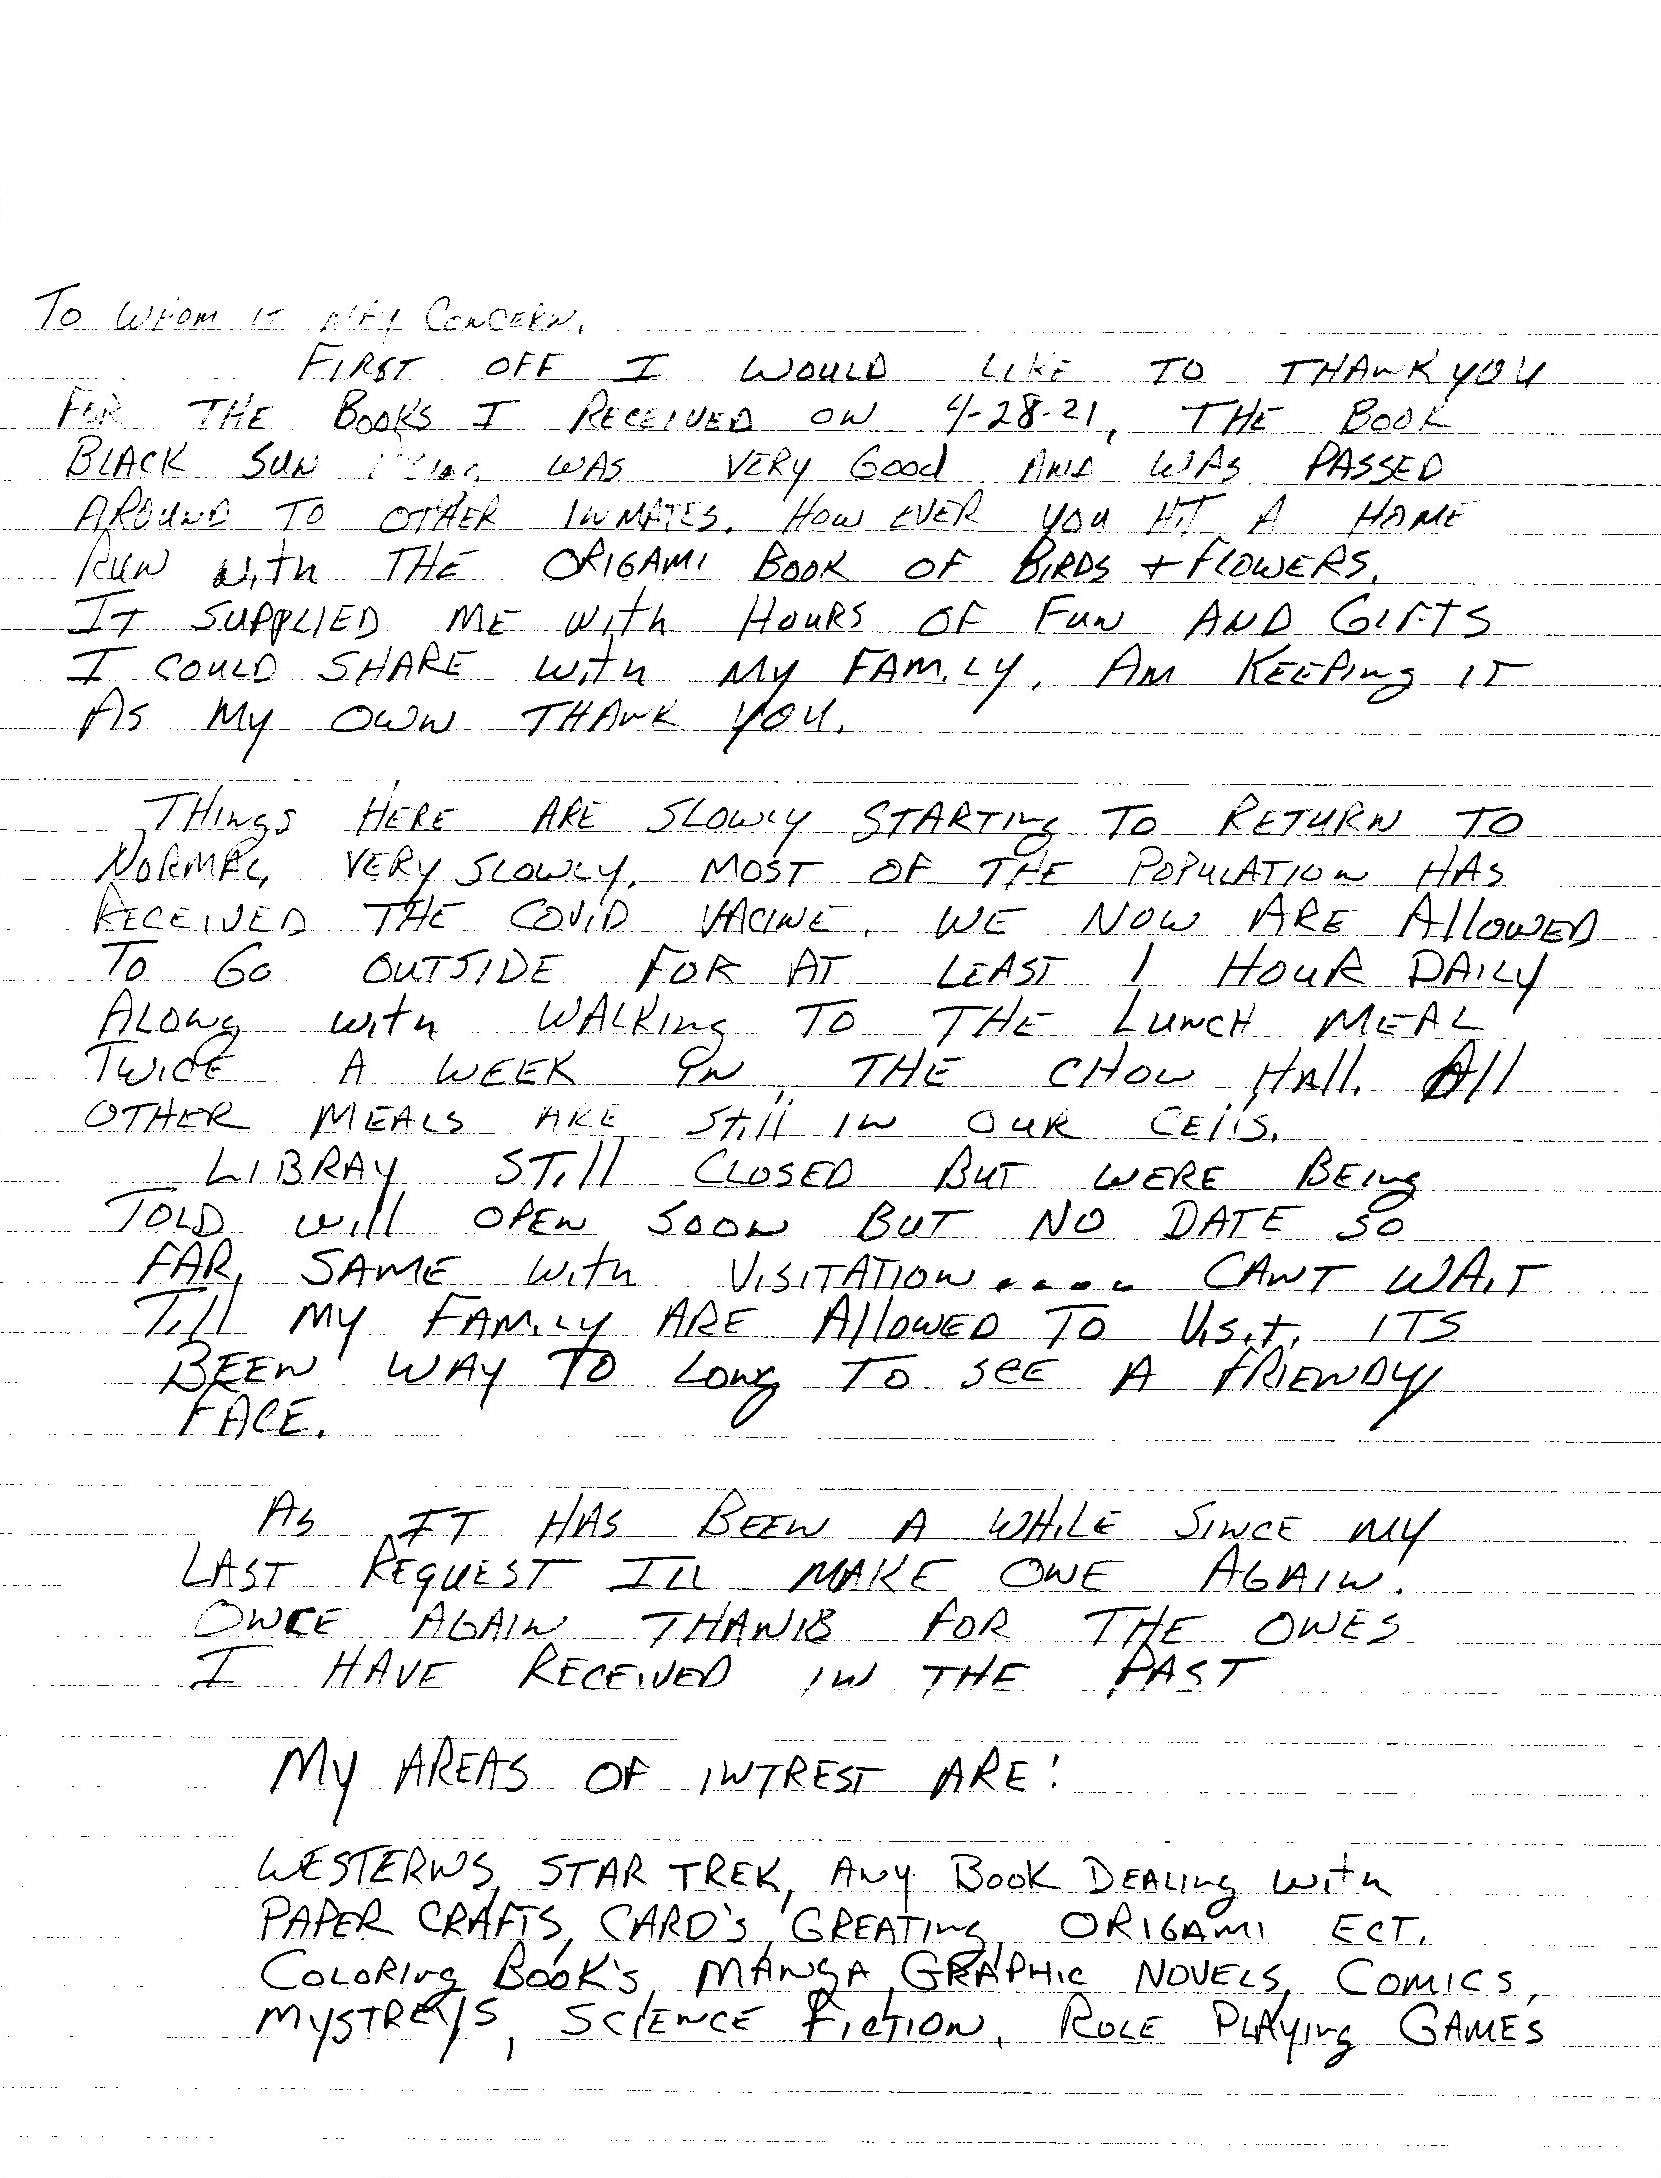 TO WHOM IT MAY CONCERN,
FIRST OFF I WOULD LIKE TO THANK YOU
FOR THE BOOKS I RECEIVED ON 4-28-21, THE BOOK
BLACK SUN WAS VERY GOOd AND WAS PASSED
AROUND TO OTHER INMATES. HOW EVER YOU HIT A HOME
RUN with THE ORIGAMI BOOK OF BIRDS + FLOWERS.
IT SUPPLIED ME with HOURS OF FUN AND GIFTS
I COULD SHARE with MY FAMILY. AM KEEPING IT
AS MY OWN THANK YOU.
THINgS HERE ARE SLOWLY STARTINg TO RETURN TO
NORMAL, VERY SLOWLY. MOST OF THE POPULATION HAS
RECEIVED THE COVID VACINE. WE NOW ARE AllOWED
TO GO OUTSIDE FOR AT LEAST 1 HOUR DAILY
ALONg with WALKINg TO THE LUNCH MEAL
TWICE A WEEK IN THE CHOW HAll. All
OTHER MEALS ARE Still IN OUR CEllS.
LIBRAY STill CLOSED BUT WERE BEINg
TOLD will OPEN SOON BUT NO DATE SO
FAR, SAME with VISITATION.... CANT WAIT
Till MY FAMILY ARE AllOWED TO VisiT. ITS
BEEN WAY TO LONg TO SEE A FRIENDLY
FACE.
AS IT HAS BEEN A WHILE SINCE MY
LAST REQUEST Ill MAKE ONE AGAIN.
ONCE AGAIN THANKS FOR THE ONES
I HAVE RECEIVED IN THE PAST
MY AREAS OF INTREST ARE:
WESTERNS, STAR TREK, ANY BOOK DEALINg with
PAPER CRAFTS, CARD'S, GREATINg, ORIGAMI ECT.
COLORINg BOOK'S, MANGA, GRAPHIC NOVELS, COMICS,
MYSTREYS, SCIENCE FICTION, ROLE PLAYINg GAMES